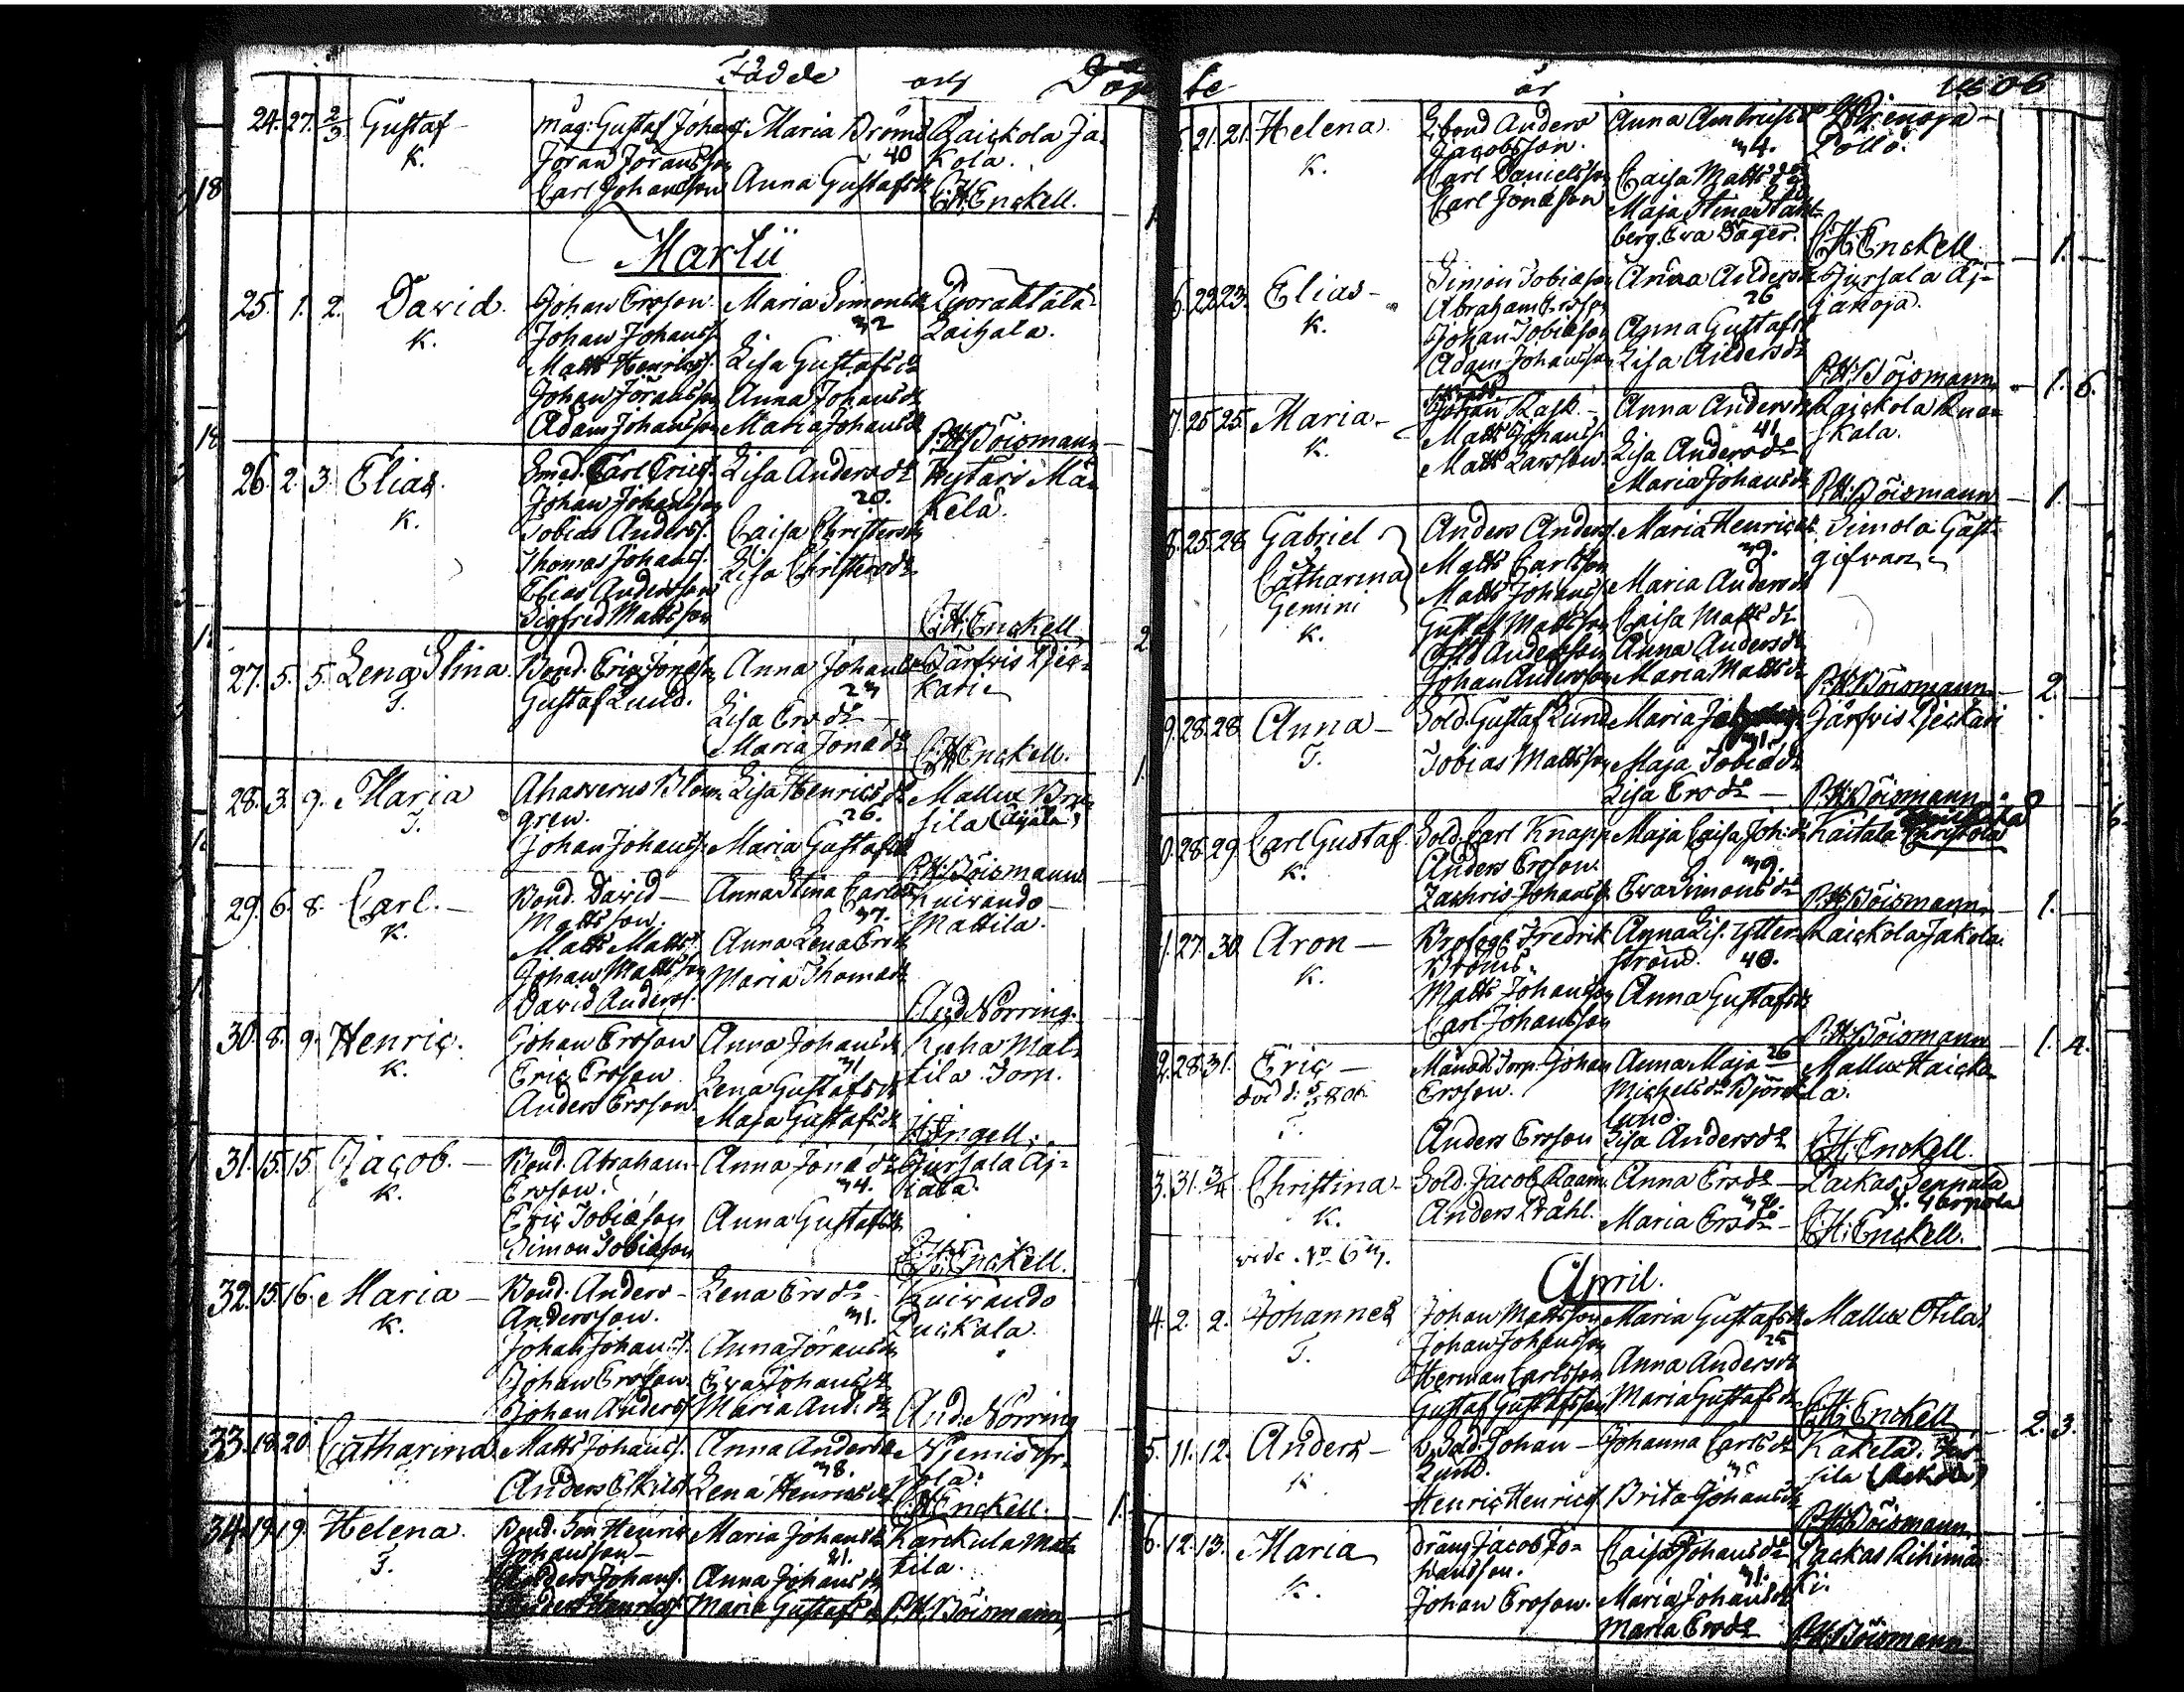 Födde och Döpte år 1806
24. 27. 2/3 Gustaf
K.
Måg: Gustaf Johans:
Jöran Jöransson
Carl Johansson
Maria Bröms
40
Anna Gustafsdr
Raickola Ja-
kola.
C.H. Enckell.
Martii
25. 1. 2. David.
K.
Johan Ersson.
Johan Johanss.
Matts Henricss.
Johan Jöransson
Adam Johansson
Maria Simonsdr
32
Lisa Gustafsdr
Anna Johansdr
Maria Johansdr
Laitzala.
P.H. Böismann
26. 2. 3. Elias.
K.
Smed. Carl Erics.
Johan Johansson
Tobias Anderss.
Thomas Johanss.
Elias Andersson
Sigfred Mattsson
Lisa Andersdr
20.
Caisa Christersdr
Lisa Christersdr
Hytari Mä-
kelä.
C.H. Enckell
27. 5. 5. Lena Stina.
T.
Bond. Eric Jonasson
Gustaf Lund.
Anna Johansdr
23
Lisa Ersdr
Maria Jonasdr
Järfvis Pjec-
kari
C.H. Enckell.
28. 3. 9. Maria
T.
Ahasverus Blom-
gren.
Johan Johanss.
Lisa Henricsdr
26.
Maria Gustafsdr
Mallux
P.H. Böismann
29. 6. 8. Carl.
K.
Bond. David
Mattsson.
Matts Matts.
Johan Mattsson
David Anderss.
Anna Stina Carlsdr
37.
Anna Lena Ersdr
Maria Thomasdr
Kuivando
Mattila.
And. Norring.
30. 8. 9. Henric.
K.
Johan Ersson
Eric Ersson
Anders Ersson
Anna Johansdr
31
Lena Gustafsdr
Maja Gustafsdr
Kuha Mat-
tila Torp.
H. Engell.
31. 15. 15. Jacob.
K.
Bond. Abraham
Ersson.
Eric Tobiasson
Simon Tobiasson
Anna Jonasdr
34.
Anna Gustafsdr
Gursala Äj-
jälä.
C.H. Enckell.
32. 15. 16. Maria
K.
Bond. Anders
Andersson.
Johan Johanss.
Johan Ersson.
Johan Anderss.
Lena Ersdr
31.
Anna Jöransdr
Eva Johansdr
Maria And.dr
Kuivando
Puckala.
And. Norring
33. 18. 20. Catharina
Matts Johanss.
Anders Eskilss.
Anna Andersdr
38.
Lena Henricsdr
Niemis
C.H. Enckell.
34. 19. 19. Helena.
T.
Bond. Son Henric
Johansson
Anders Johanss.
Anders Henricss.
Maria Johansdr
21.
Anna Johansdr
Maria Gustafsdr
Karckula Mat-
tila.
P.H. Böismann
5. 21. 21. Helena.
K.
Anders
Jacobsson.
Carl Danielsson
Carl Jonasson
Anna
34.
Caisa Mattsdr
Maja Stina Stahl-
berg. Eva Sager.
C.H. Enckell
1.
6. 22. 23. Elias
K.
Simon Tobiasson
Abraham Ersson
Johan Tobiasson
Adam Johansson
Anna Andersdr
26
Anna Gustafsdr
Lisa Andersdr
Jursala Äj-
P.H. Böismann
1. 6.
7. 25. 25. Maria
K.
Johan Rask
Matts Johanss.
Matts Larsson.
Anna Andersdr
41.
Lisa Andersdr
Maria Johansdr
Raickola Rua-
skala.
P.H. Böismann
1.
8. 25. 28. Gabriel
Catharina
Gemini
K.
Anders Anderss.
Matts Carlsson
Matts Johanss.
Gustaf Mattsson
Esko Andersson
Johan Andersson
Maria Henricsdr
39.
Maria Andersdr
Caisa Mattsdr
Anna Andersdr
Maria Mattsdr
Simola Gäst-
gifvare
P.H. Böismann
2.
9. 28. 28. Anna
T.
Sold. Gustaf Lund
Tobias Mattsson
Maria
31.
Maja Tobiasdr
Lisa Ersdr
Järfvis Pjeckari
P.H. Böismann
0. 28. 29. Carl Gustaf.
K.
Sold. Carl Knapp
Anders Ersson.
Zachris Johanss.
Maja Caisa Joh:dr
39.
Eva Simonsdr
Kaitala
P.H. Böismann
1.
1. 27. 30. Aron
K.
Fredrik
Bröms.
Matts Johansson
Carl Johansson
Anna Lis. Ytter-
strönd. 40.
Anna Gustafsdr
Raickola Jakola.
P.H. Böismann
1. 4.
2. 28. 31. Eric
T.
Johan
Ersson.
Anders Ersson
Anna Maja 26
Michelsdr Björk-
lund.
Lisa Andersdr
Mallux Haicka-
la.
C.H. Enckell.
3. 31. 3/4 Christina
K.
vide. No 67.
Sold. Jacob Raam.
Anders Stråhl.
Anna Ersdr
Maria Ersdr
Packas Seppälä
C.H. Enckell.
April.
4. 2. 2. Johannes
T.
Johan Mattsson
Johan Johansson
Herman Carlsson
Gustaf Gustafsson
Maria Gustafsdr
25
Anna Andersdr
Maria Gustafsdr
Mallux Ohila
C.H. Enckell
2. 3.
5. 11. 12. Anders
K.
Johan
Lund.
Henric Henricss.
Johanna Carlsdr
Brita Johansdr
P.H. Böismann
6. 12. 13. Maria
K.
Dräng Jacob Jo-
hansson.
Johan Ersson.
Caisa Johansdr
31.
Maria Johansdr
Maria Ersdr
Packas Rihimä-
ki.
P.H. Böismann